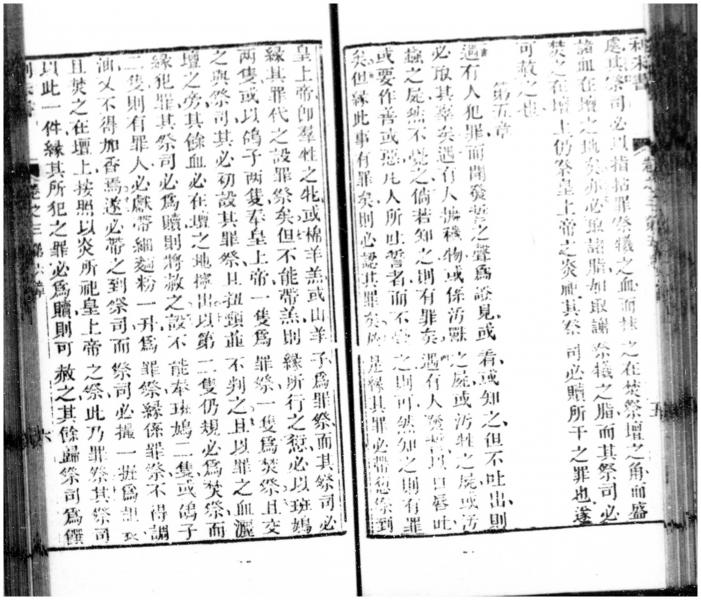 利未書 卷之三第五章 五
處其祭司必以指拈罪祭犧之血而抹之在焚祭壇之角而盛
諸血在壇之地矣亦必取諸脂如取謝祭犧之脂而其祭司必
焚之在壇上仍祭皇上帝之炎祀其祭司必贖所干之罪也遂
可赦之也
第五章
遇有人犯罪而聞發誓之聲爲證見或看或知之但不吐出則
必取其辜矣遇有人捫穢物或係汚獸之屍或汚牲之屍或汚
蟲之屍然不覺之倘若知之則有罪矣遇有人發誓以口唇吐
或要作善或惡凡人所吐誓者而不覺之則可然知之則有罪
矣但緣此事有罪矣則必認其罪矣 是緣其罪必帶愆祭到
皇上帝卽羣牲之牝或棉羊羔或山羊子爲罪祭而其祭司必
緣其罪代之設罪祭矣但不能帶羔則緣所行之愆必以斑鳩
兩隻或以鴿子兩隻奉皇上帝一隻爲罪祭一隻爲焚祭且交
之與祭司其必初設其罪祭且扭頸並不判之且以罪之血灑
壇之旁其餘血必在壇之地擰出以第二隻仍規必爲焚祭而
緣犯罪其祭司必爲贖則將赦之設不能奉斑鳩二隻或鴿子
二隻則有罪人必獻帶細麵粉一升爲罪祭緣係罪祭不得調
油又不得加香焉遂必帶之到祭司而祭司必撮一 爲 表
且焚之在壇上按照以炎所祀皇上帝之祭此乃罪祭其祭司
以此一件緣其所犯之罪必爲贖則可赦之其餘歸祭司爲饌
利未書 卷之三第 章 六